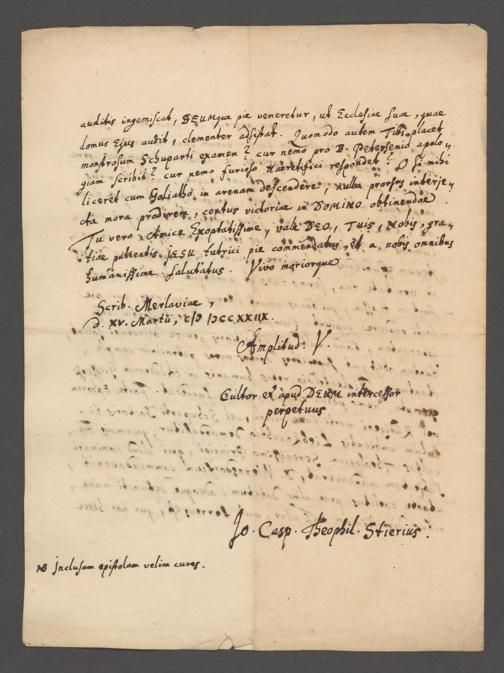 auditis ingemiscat, DEUMque pie veneretur, ut Ecclesiae suae, quae
domus Ejus audit, clementer adsistat. Quomodo autem Tibi placet
monstrosum Schuparti examen? cur nemo pro B. Petersenio apolo„
giam scribit? cur nemo furioso Haeretifici respondet? O si mihi
liceret cum Goliatho in arenam descendere, nulla prorsus interje„
cta mora prodirem, certus victoriae in DOMINO obtinendae.
Tu vero, Amice Exoptatissime, vale DEO, Tuis, Nobis, gra„
tiae potentis JESU tutrici pie commendatus, et a nobis omnibus
humanissime salutatus. Vivo moriorque
Scrib. Merlaviae,
d. XV. Martii, CIƆ IƆCCXXIIX.
Amplitud: V.
Cultor et apud DEUM intercessor
perpetuus
Jo. Casp. Theophil. Stierius.
NB Inclusam epistolam velim cures.